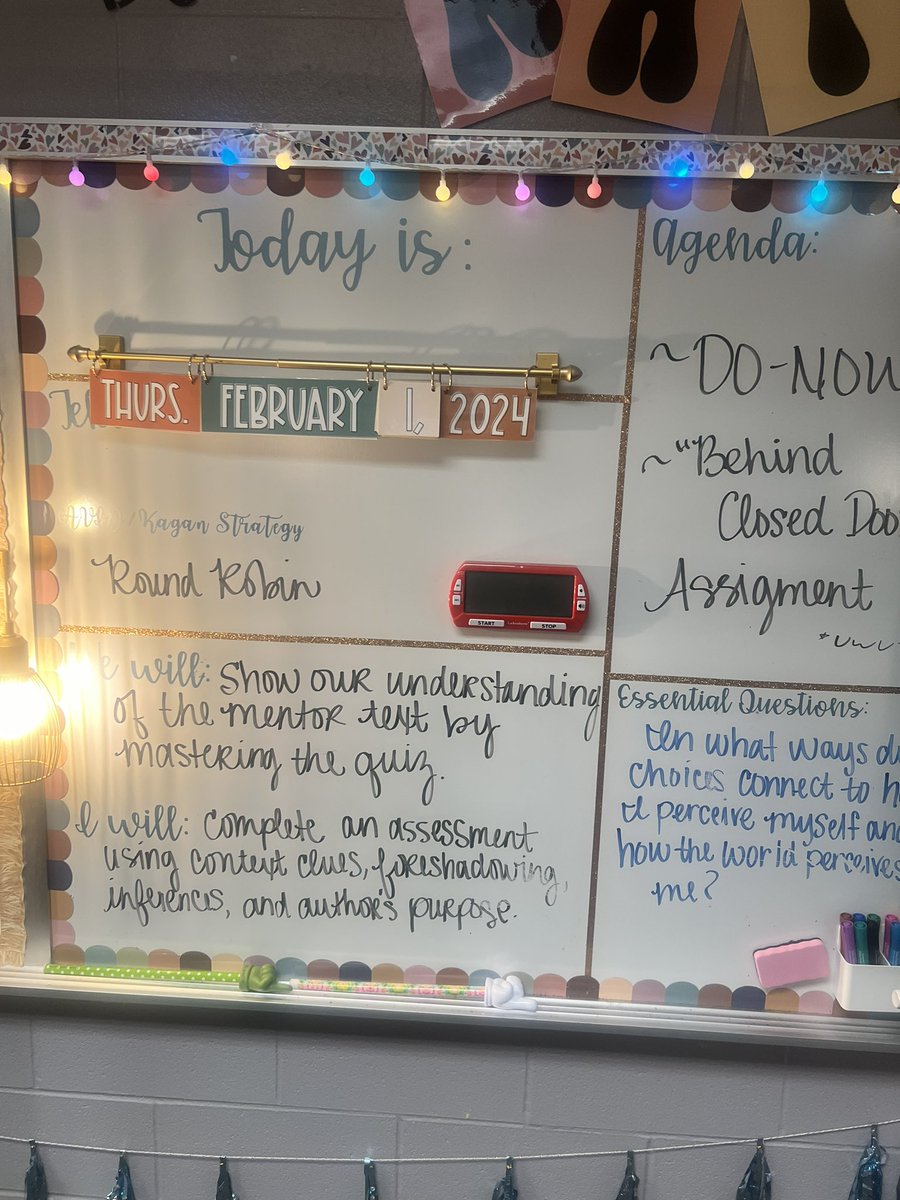 Today is:
THURS. FEBRUARY 1, 2024
Kagan Strategy
Round Robin
START STOP
we will: Show our understanding
of the mentor text by
mastering the quiz.
I will: Complete an assessment
using context clues, foreshadowing,
inferences, and author's purpose.
Agenda:
~DO-NOW
~"Behind
Closed Doo
Assigment
Essential Questions:
In what ways d
choices connect to h
I perceive myself and
how the world perceives
me?